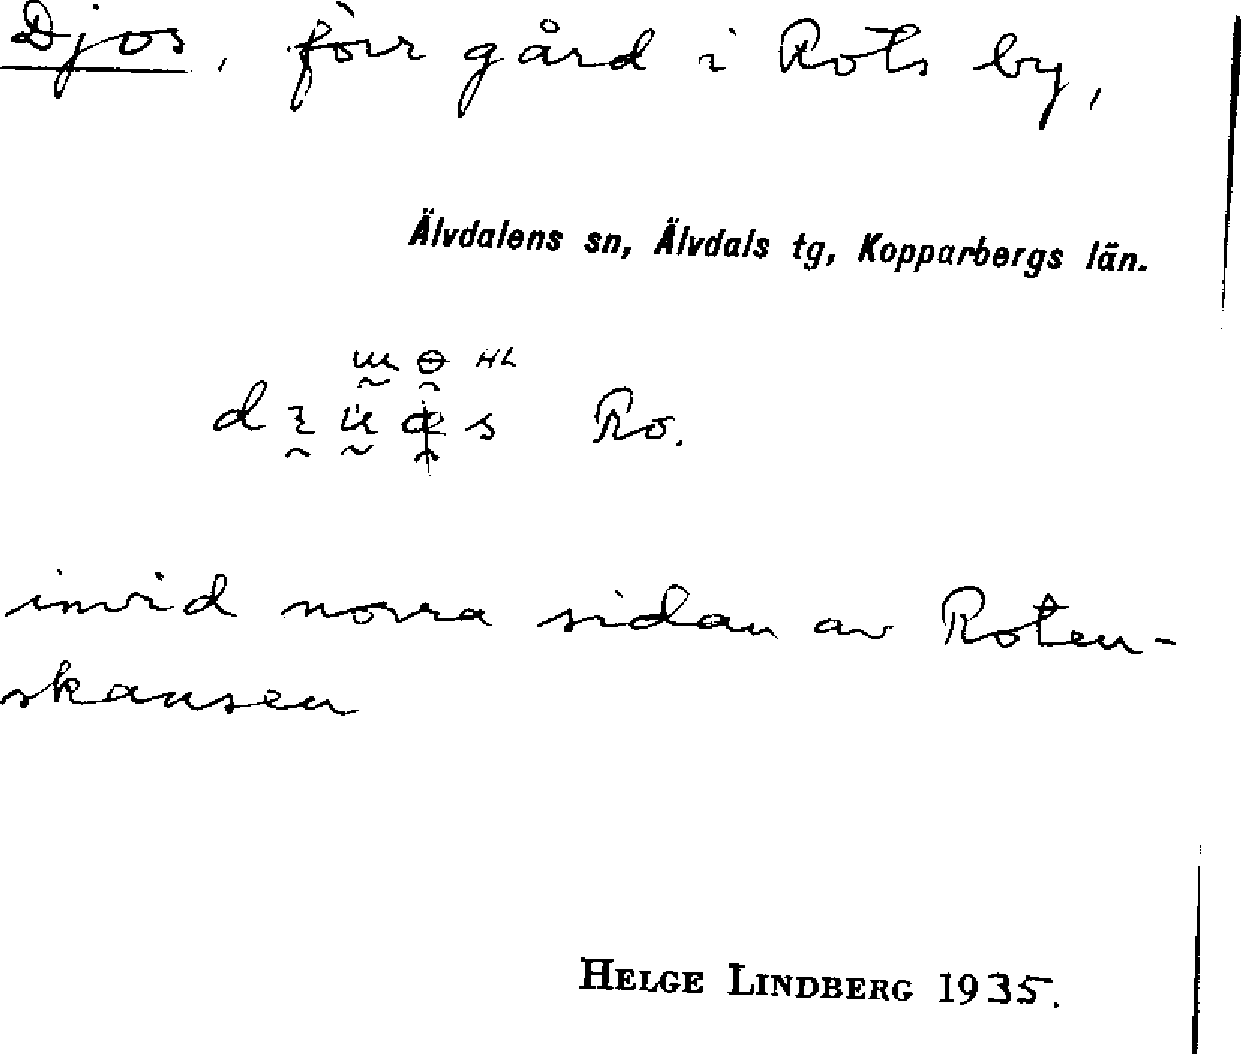 Djos, förr gård i Rots by,
Älvdalens sn, Älvdals tg, Kopparbergs län.
HL
Ro.
invid norra sidan av Roten-
skansen
HELGE LINDBERG 1935.